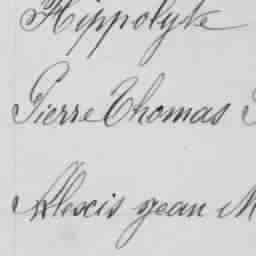 Hippolyte
Pierre Thomas
Alexis jean